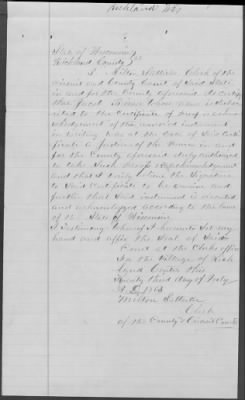 Richland Co
State of Wisconsin
Richland County SS
I Milton Satterlee Clerk of the
Circuit and County Court of said State
in and for the County aforesaid do certify
that Jacob whose name is subscri
bed to the Certificate of and acknow
ledgement of the annexed instrument
in writing was at the date of said Certi
ficate a Justice of the Peace in and
for the County aforesaid duly authorized
to take such proofs & acknowledgements
and that I verily believe the Signature
to said Certificate to be genuine and
further that said instrument is executed
and acknowledged according to the laws
of the State of Wisconsin
In Testimony Whereof I hereunto set my
hand and affix the Seal of said
Court at the Clerks office
in the Village of Rich
land Center this
twenty third day of July
A D 1864
Milton Satterlee
Clerk
of the County & Circuit Courts